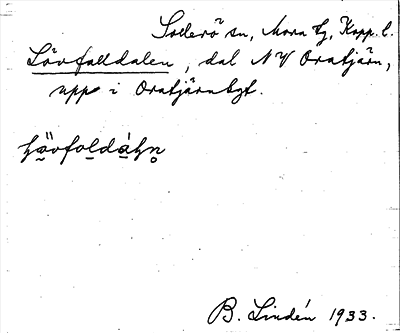 Sollerö sn, Mora tg, Kopp. l.
Lövfalldalen, dal NV Oratjärn,
uppe i Oratjärnbgt.
B. Lindén 1933.